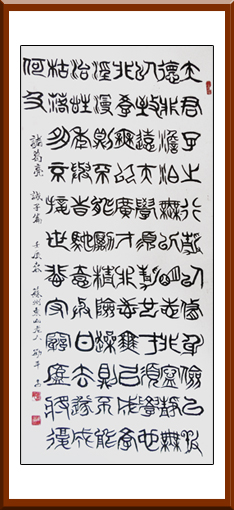 夫君子之行靜以修身儉以養
德非澹泊無以明志非寧靜無
以致遠夫學須靜也才須學也
非學無以廣才非志無以成學
淫慢則不能勵精險躁則不能
冶性年與時馳意與日去遂成
枯落多不接世悲守窮廬將復
何及
諸葛亮 誡子篇 壬辰 蘇州東山老人